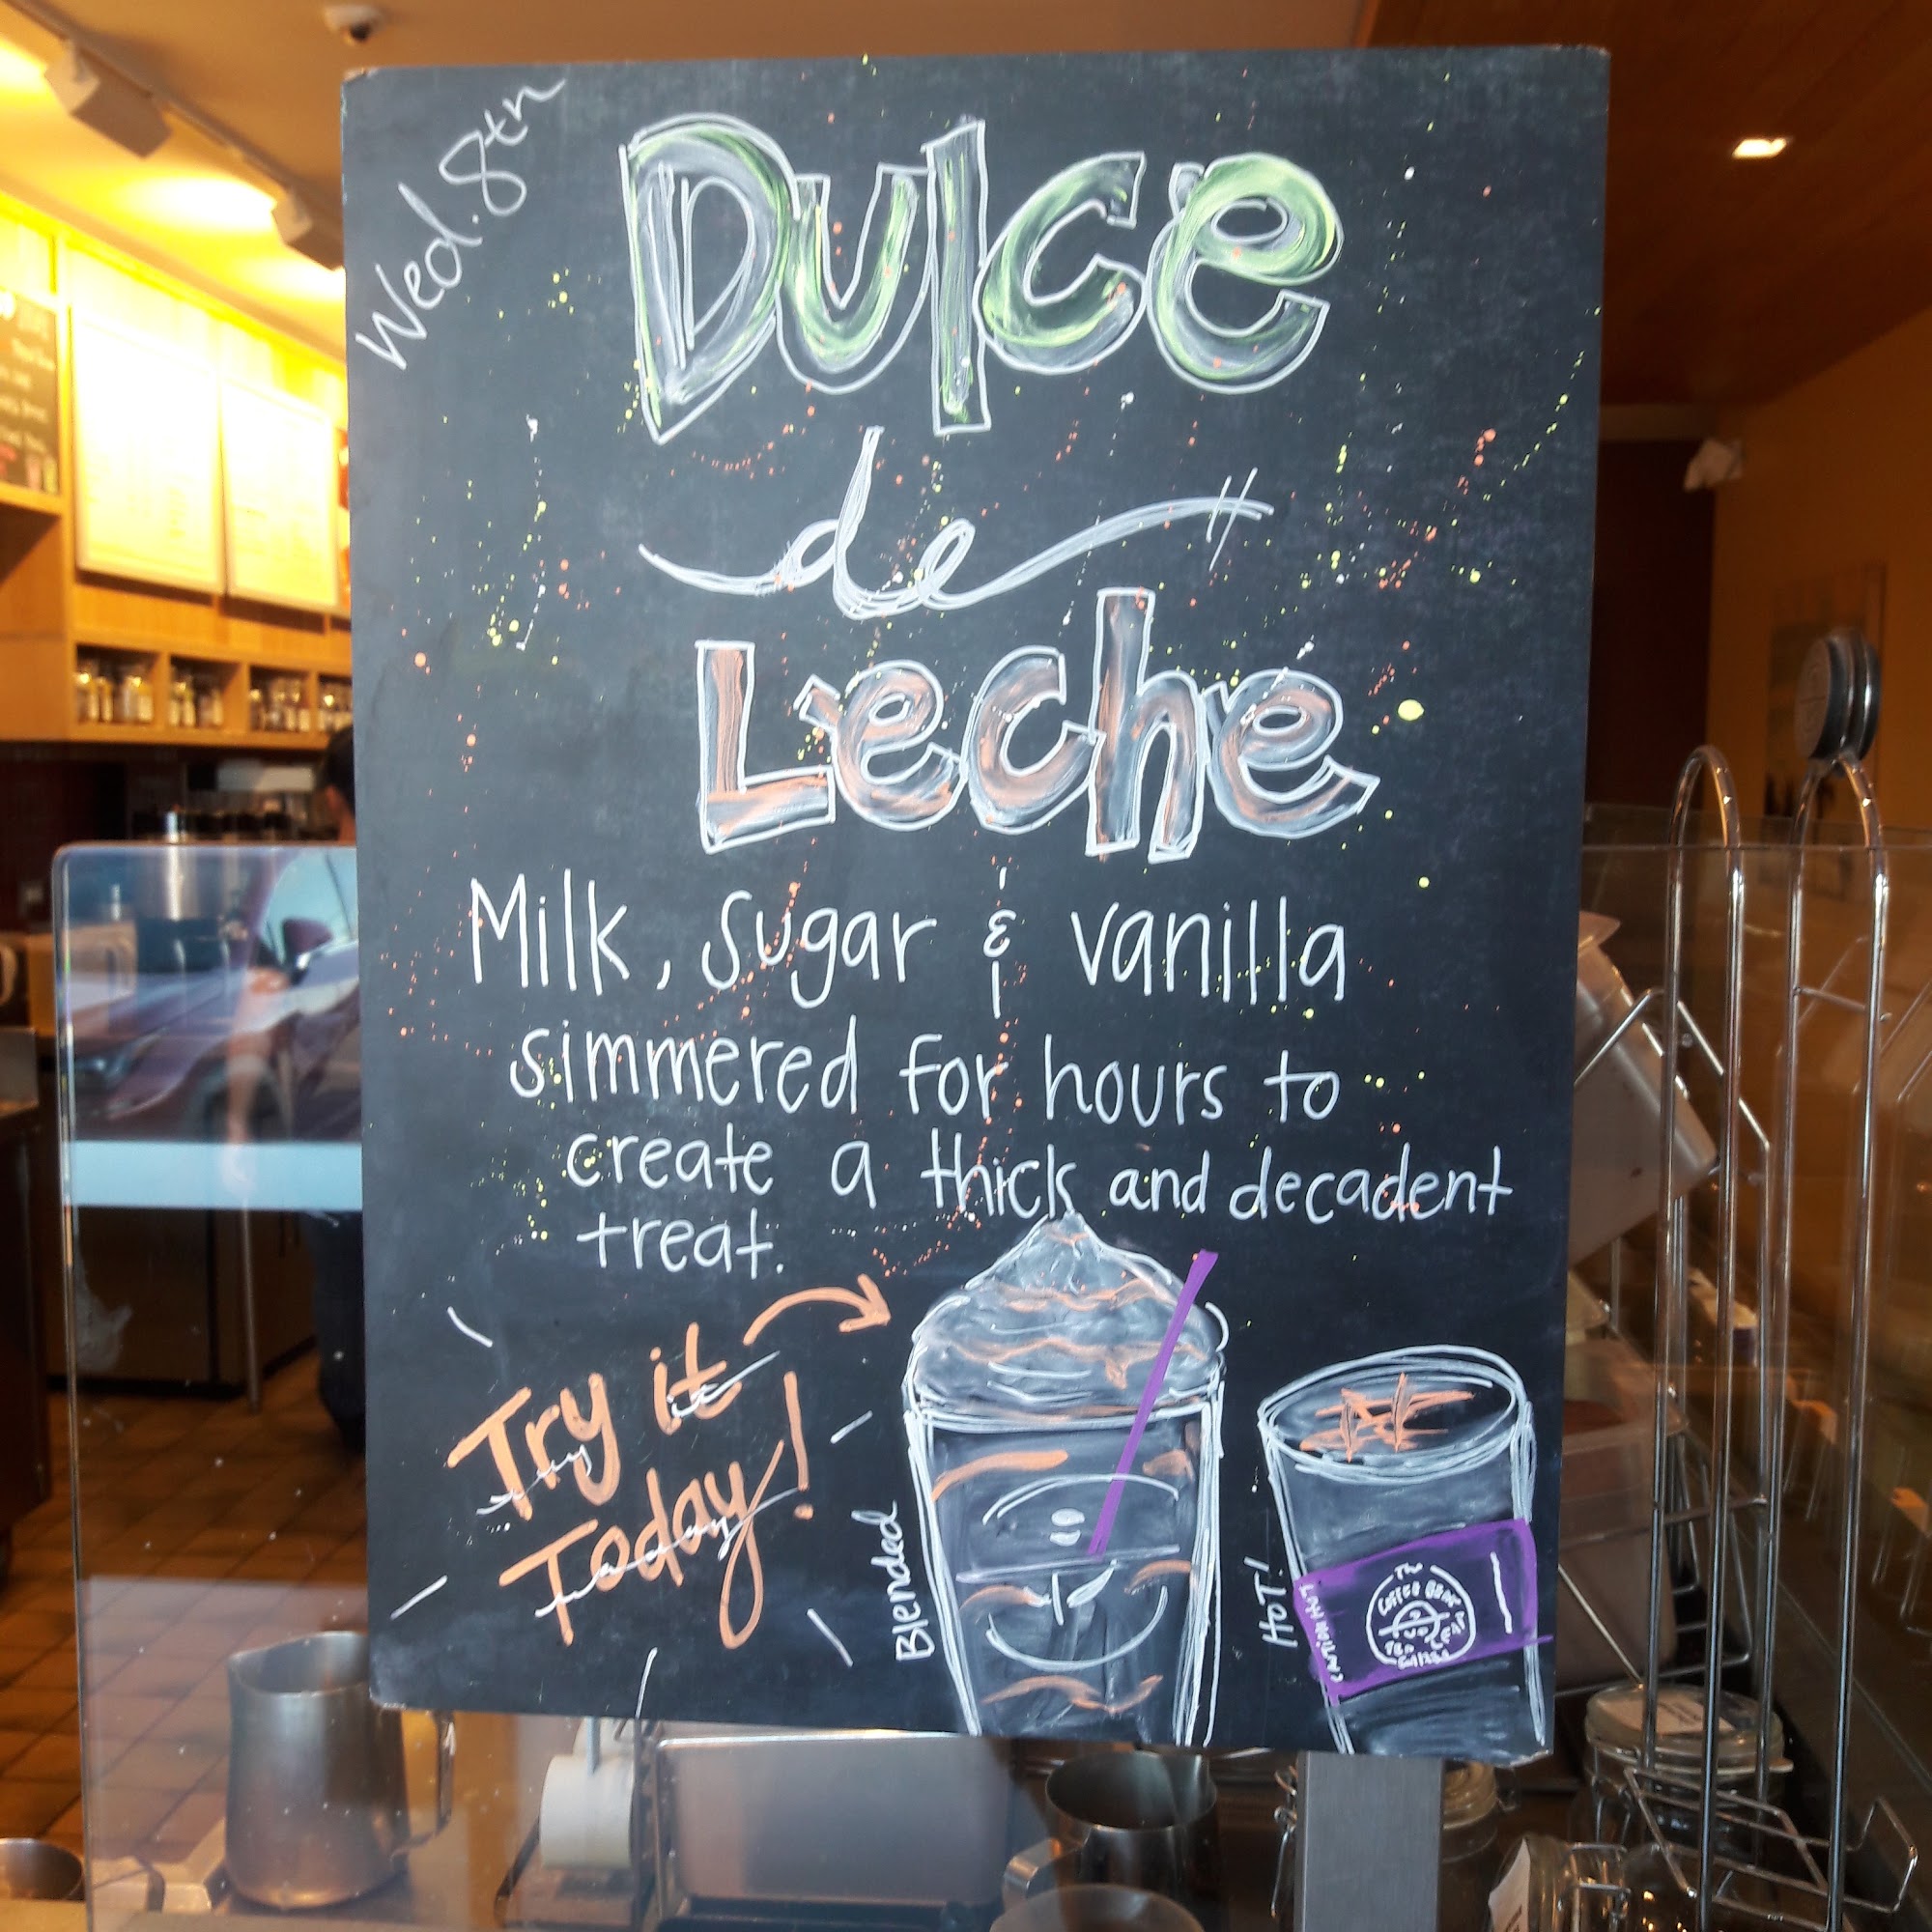 Wed. 8th
Dulce
de
Leche
Milk, sugar & vanilla
simmered for hours to
create a thick and decadent
treat.
Try it
Today!
Blended
HoT!
CAUTION HOT
The
Coffee Bean